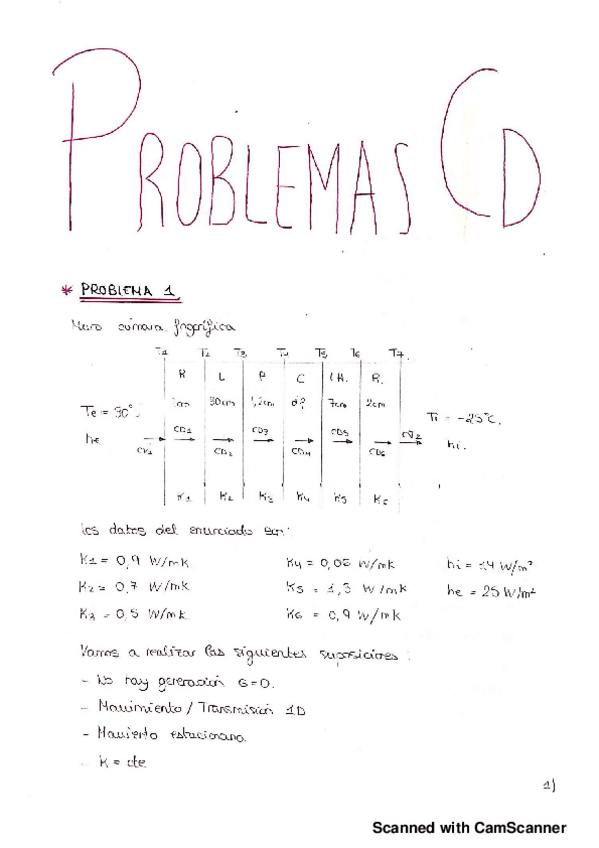 PROBLEMAS CD
* PROBLEMA 1
Muro cámara frigorífica
T1 T2 T3 T4 T5 T6 T7
R L P C LH. R.
1cm 30cm 1,2cm d? 7cm 2cm
Te = 30°
he
CV1 CD1 CD2 CD3 CD4 CD5 CD6 CV2
Ti = -25°C.
hi.
K1 K2 K3 K4 K5 K6
Los datos del enunciado son:
K1 = 0,9 W/mk K4 = 0,05 W/mk hi = 14 W/m²
K2 = 0,7 W/mk K5 = 1,3 W/mk he = 25 W/m²
K3 = 0,5 W/mk K6 = 0,9 W/mk
Vamos a realizar las siguientes suposiciones:
- No hay generación G=0.
- Movimiento / Transmisión 1D
- Movimiento estacionario.
- K = cte
1)
Scanned with CamScanner